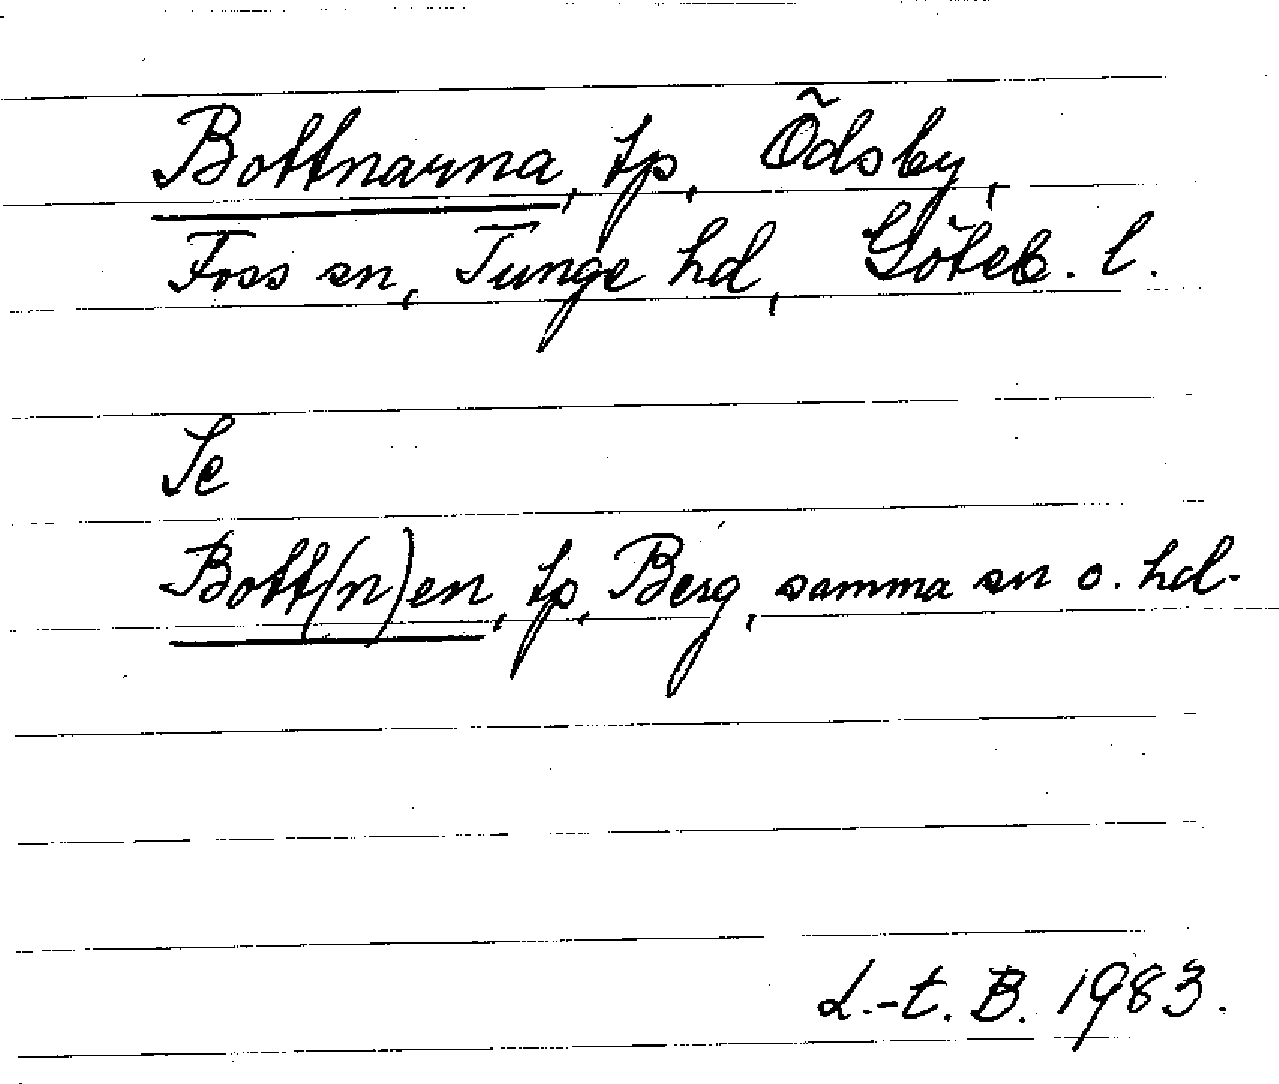 Bottnarna, tp, Ödsby,
Foss sn, Tunge hd, Göteb. l.
Se
Bott(n)en, tp, Berg, samma sn o. hd.
L.-t. B. 1983.